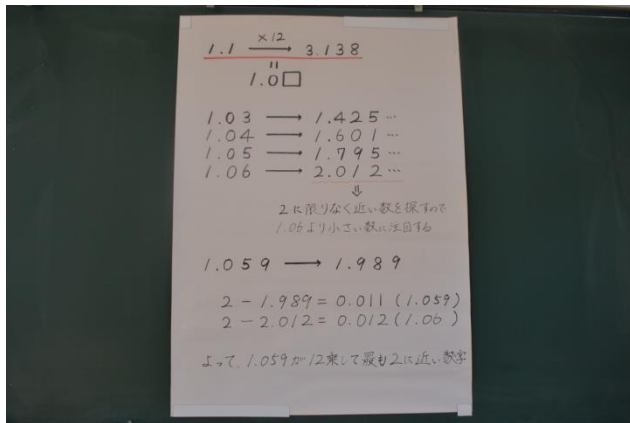 ×12
1.1 → 3.138
=
1.0□
1.03 → 1.425…
1.04 → 1.601…
1.05 → 1.795…
1.06 → 2.012…
⇓
2に限りなく近い数を探すので
1.06より小さい数に注目する
1.059 → 1.989
2 − 1.989 = 0.011 (1.059)
2 − 2.012 = 0.012 (1.06)
よって、1.059が12乗して最も2に近い数字